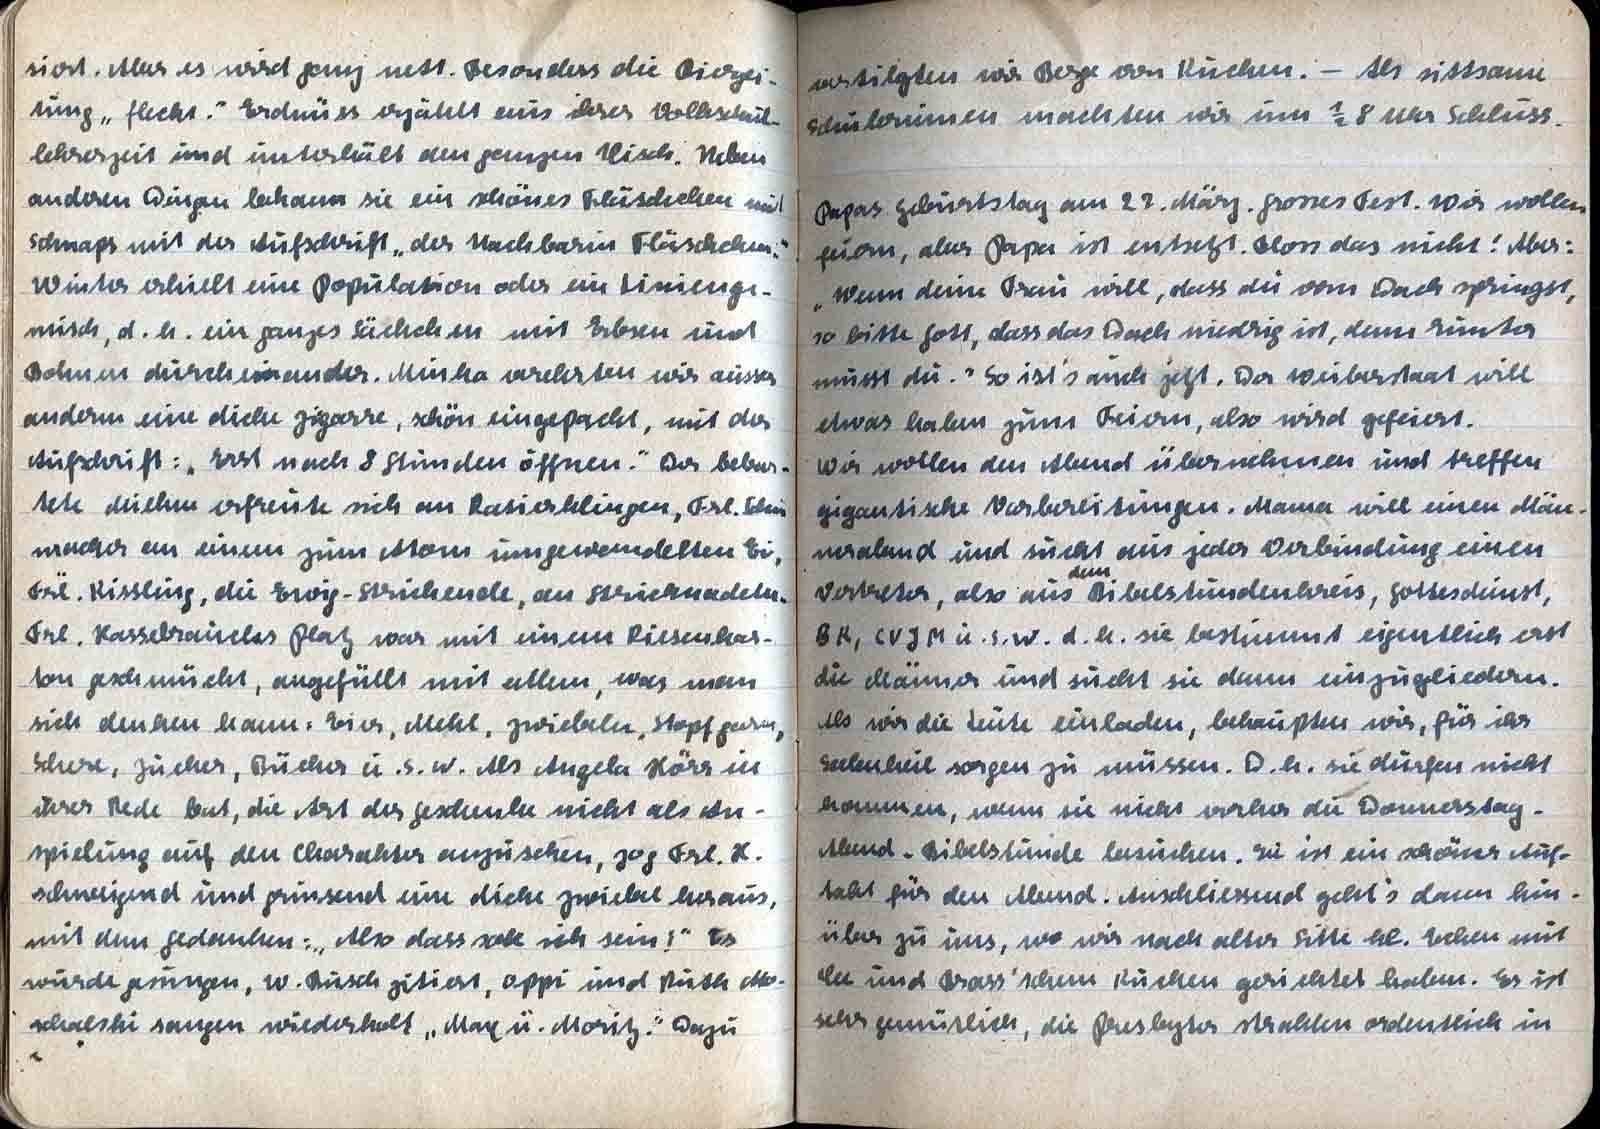 siert. Aber es wird ganz nett. Besonders die Bierzei-
tung „fleckt." Erdnüss erzählt aus ihrer Volksschul-
lehrerzeit und unterhält den ganzen Tisch. Neben
anderen Dingen bekam sie ein schönes Fläschchen mit
Schnaps mit der Aufschrift „der Nachbarin Fläschchen."
Winter erhielt eine Population oder ein Linienge-
misch, d.h. ein ganzes Säckchen mit Erbsen und
Bohnen durcheinander. Minka verehrten wir ausser
anderm eine dicke Zigarre, schön eingepackt, mit der
Aufschrift: „Erst nach 8 Stunden öffnen." Der bebar-
tete erfreute sich an Rasierklingen, Frl. Schu
macher an einem zum Atom umgewandelten Ei,
Frl. Kissling, die Ewig-Strickende, an Stricknadeln.
Frl. Platz war mit einem Riesenkar-
ton geschmückt, angefüllt mit allem, was man
sich denken kann: Eier, Mehl, Zwiebeln, Stopfgarn,
Schere, Zucker, Bücher u.s.w. Als Angela Hörr in
ihrer Rede bat, die Art der Geschenke nicht als An-
spielung auf den Charakter anzusehen, zog Frl. K.
schweigend und grinsend eine dicke Zwiebel heraus,
mit dem Gedanken: „Also dass soll ich sein!" Es
wurde gesungen, W. Busch zitiert, Oppi und Ruth Mo-
schalski sangen wiederholt „Max u. Moritz." Dazu
vertilgten wir Berge von Kuchen. – Als sittsame
Schülerinnen machten wir um ½ 8 Uhr Schluss.
Papas Geburtstag am 22. März. Grosses Fest. Wir wollen
feiern, aber Papa ist entsetzt. Bloss das nicht! Aber:
„Wenn deine Frau will, dass du vom Dach springst,
so bitte Gott, dass das Dach niedrig ist, denn runter
musst du." So ist's auch jetzt. Der Weiberstaat will
etwas haben zum Feiern, also wird gefeiert.
Wir wollen den Abend übernehmen und treffen
gigantische Vorbereitungen. Mama will einen Män-
nerabend und sucht aus jeder Verbindung einen
Vertreter, also aus dem Bibelstundenkreis, Gottesdienst,
BK, CVJM u.s.w. d.h. sie bestimmt eigentlich erst
die Männer und sucht sie dann einzugliedern.
Als wir die Leute einladen, behaupten wir, für ihr
Seelenheil sorgen zu müssen. D.h. sie dürfen nicht
kommen, wenn sie nicht vorher die Donnerstag-
Abend-Bibelstunde besuchen. Sie ist ein schöner Auf-
takt für den Abend. Anschliessend geht's dann hin-
über zu uns, wo wir nach alter Sitte kl. Ecken mit
Tee und Brass'schem Kuchen gerichtet haben. Es ist
sehr gemütlich, die Presbyter strahlen ordentlich in